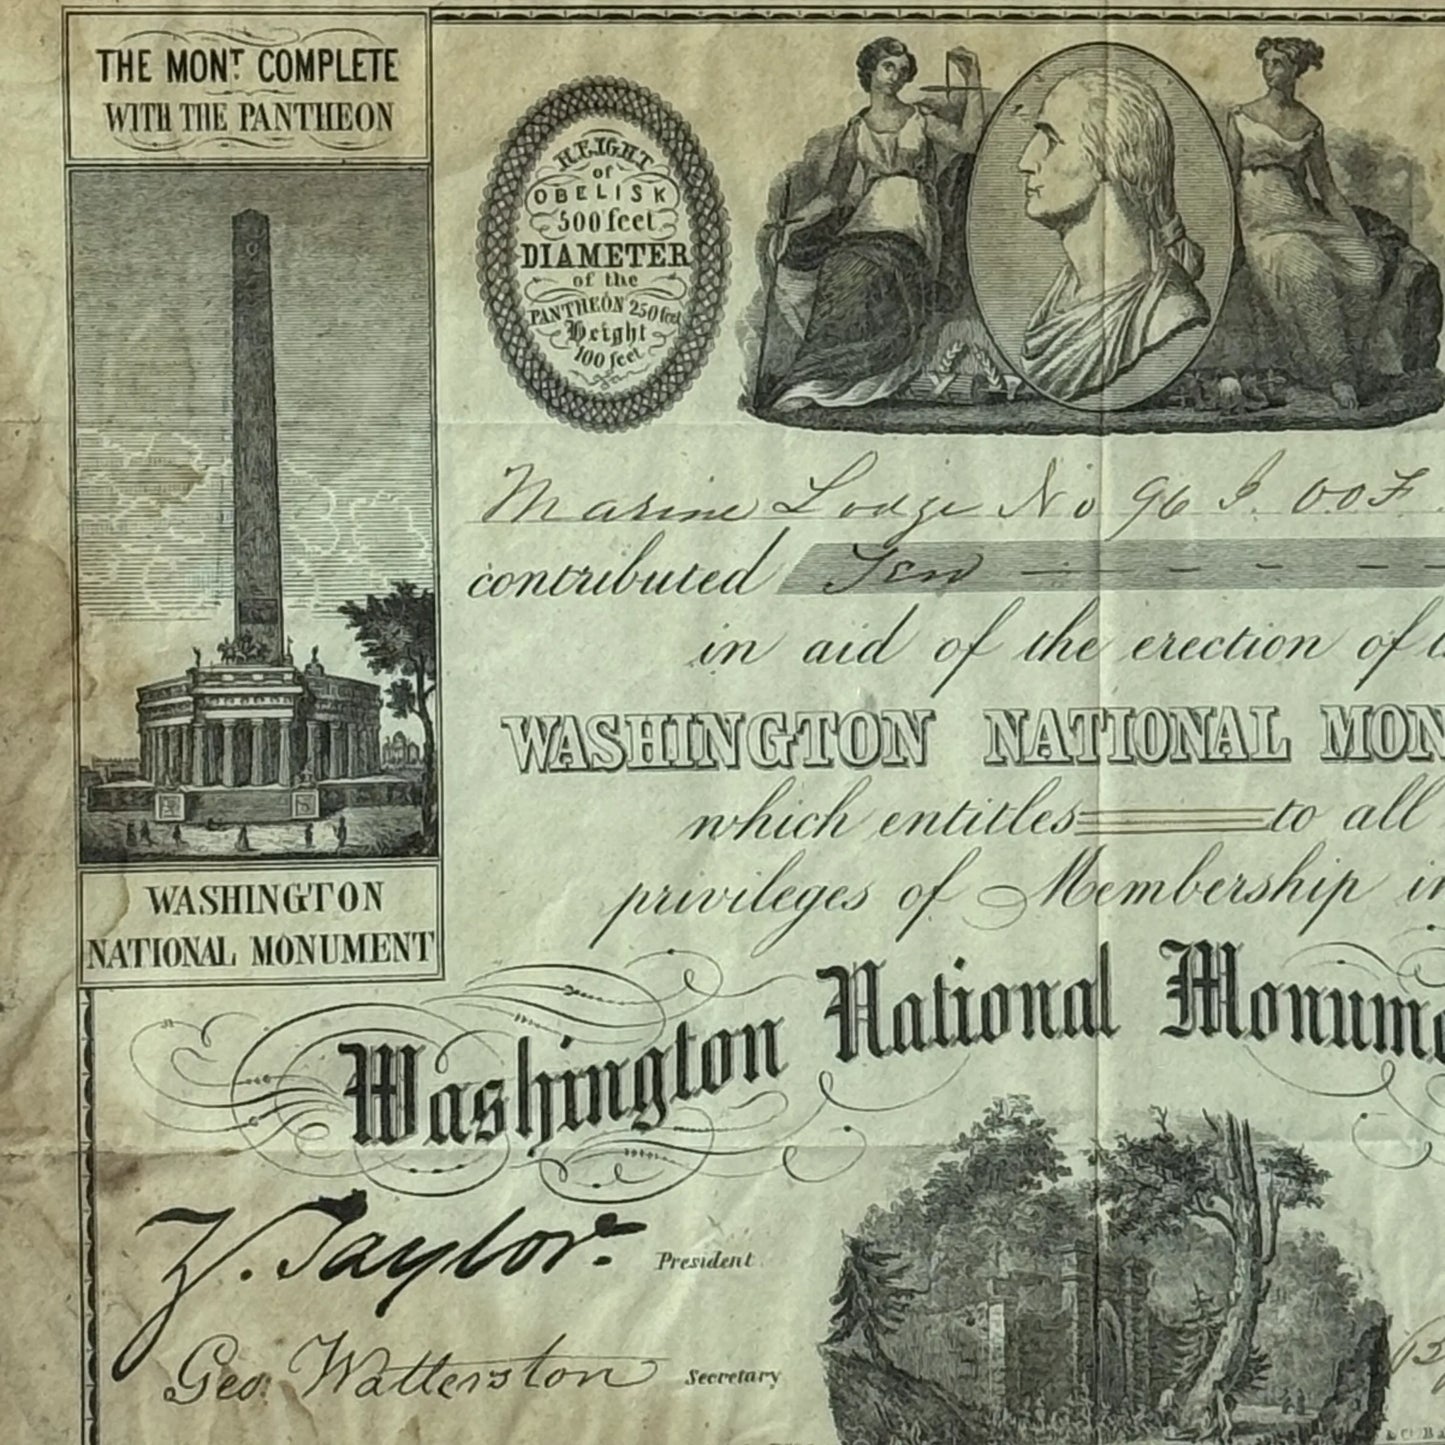 THE MONT. COMPLETE
WITH THE PANTHEON
HEIGHT
of
OBELISK
500 feet
DIAMETER
of the
PANTHEON 250 feet
Height
100 feet
Marine Lodge No 96 I. O O F.
contributed Ten
in aid of the erection of
WASHINGTON NATIONAL MON
which entitles to all
privileges of Membership in
WASHINGTON
NATIONAL MONUMENT
Washington National Monume
Z. Taylor. President
Geo. Watterston Secretary